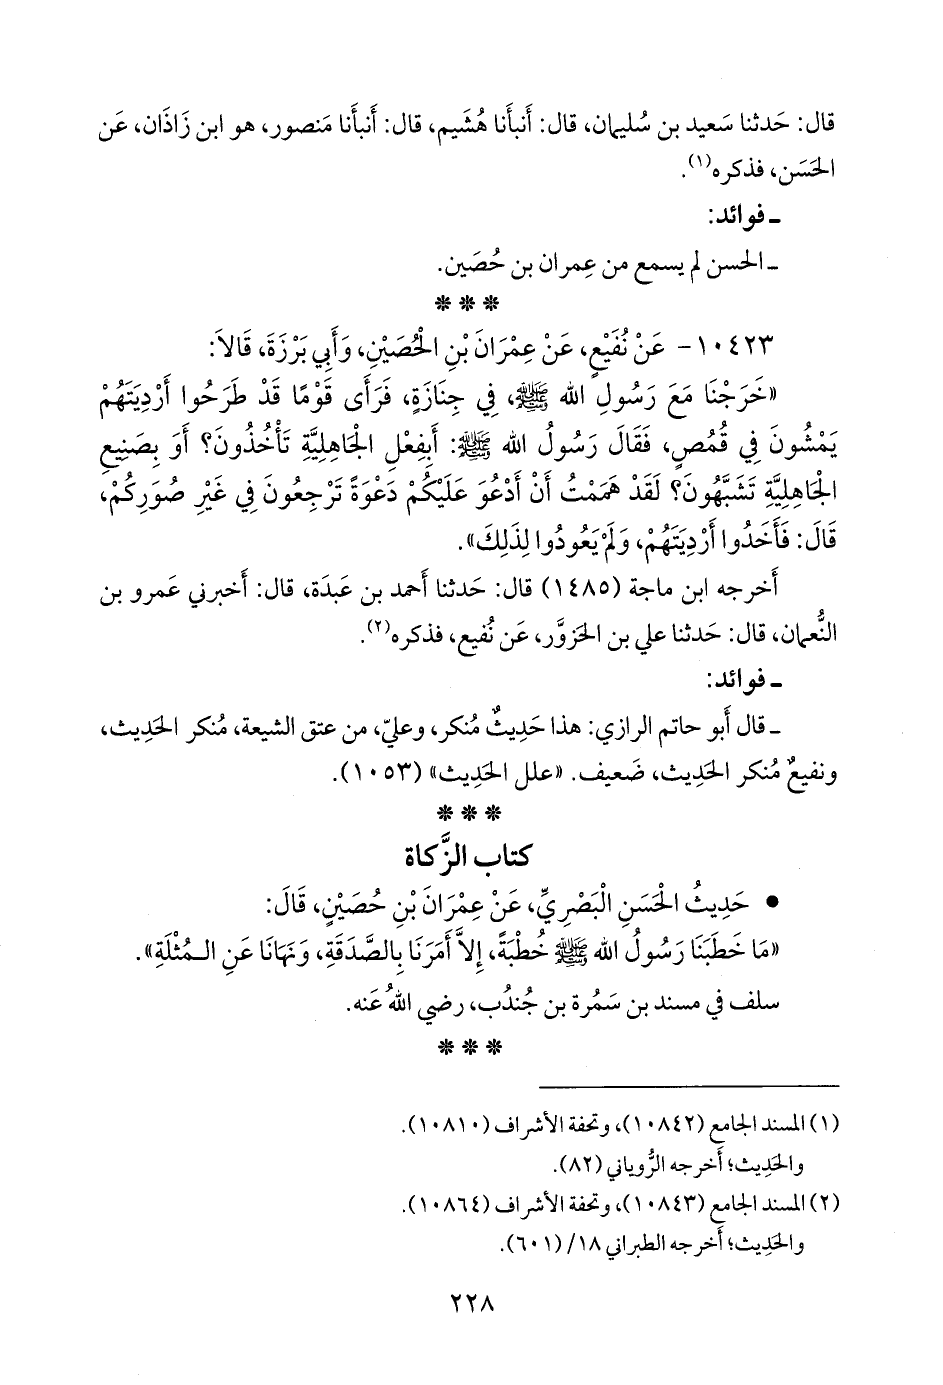 قال: حَدثنا سَعيد بن سُليمان، قال: أَنبأَنا هُشَيم، قال: أَنبأَنا مَنصور، هو ابن زَاذَان، عَن
الحَسَن، فذكره(١).
ـ فوائد:
ـ الحسن لم يسمع من عِمران بن حُصَين.
* * *
١٠٤٢٣- عَنْ نُفَيْعٍ، عَنْ عِمْرَانَ بْنِ الْحُصَيْنِ، وَأَبِي بَرْزَةَ، قَالاَ:
«خَرَجْنَا مَعَ رَسُولِ الله ﷺ، فِي جِنَازَةٍ، فَرَأَى قَوْمًا قَدْ طَرَحُوا أَرْدِيَتَهُمْ
يَمْشُونَ فِي قُمُصٍ، فَقَالَ رَسُولُ الله ﷺ: أَبِفِعْلِ الْجَاهِلِيَّةِ تَأْخُذُونَ؟ أَوَ بِصَنِيعِ
الْجَاهِلِيَّةِ تَشَبَّهُونَ؟ لَقَدْ هَمَمْتُ أَنْ أَدْعُوَ عَلَيْكُمْ دَعْوَةً تَرْجِعُونَ فِي غَيْرِ صُوَرِكُمْ،
قَالَ: فَأَخَذُوا أَرْدِيَتَهُمْ، وَلَمْ يَعُودُوا لِذَلِكَ».
أَخرجه ابن ماجة (١٤٨٥) قال: حَدثنا أَحمد بن عَبدَة، قال: أَخبرني عَمرو بن
النُّعمان، قال: حَدثنا علي بن الحَزوَّر، عَن نُفيع، فذكره(٢).
ـ فوائد:
ـ قال أَبو حاتم الرازي: هذا حَدِيثٌ مُنكر، وعليّ، من عتق الشيعة، مُنكر الحَدِيث،
ونفيعٌ مُنكر الحَدِيث، ضَعيف. «علل الحَدِيث» (١٠٥٣).
* * *
كتاب الزَّكاة
• حَدِيثُ الْحَسَنِ الْبَصْرِيِّ، عَنْ عِمْرَانَ بْنِ حُصَيْنٍ، قَالَ:
«مَا خَطَبَنَا رَسُولُ الله ﷺ خُطْبَةً، إِلاَّ أَمَرَنَا بِالصَّدَقَةِ، وَنَهَانَا عَنِ الـمُثْلَةِ».
سلف في مسند بن سَمُرة بن جُندُب، رضي اللهُ عَنه.
* * *
(١) المسند الجامع (١٠٨٤٢)، وتحفة الأشراف (١٠٨١٠).
والحَدِيث؛ أَخرجه الرُّوياني (٨٢).
(٢) المسند الجامع (١٠٨٤٣)، وتحفة الأشراف (١٠٨٦٤).
والحَدِيث؛ أَخرجه الطبراني ١٨/ (٦٠١).
٢٢٨